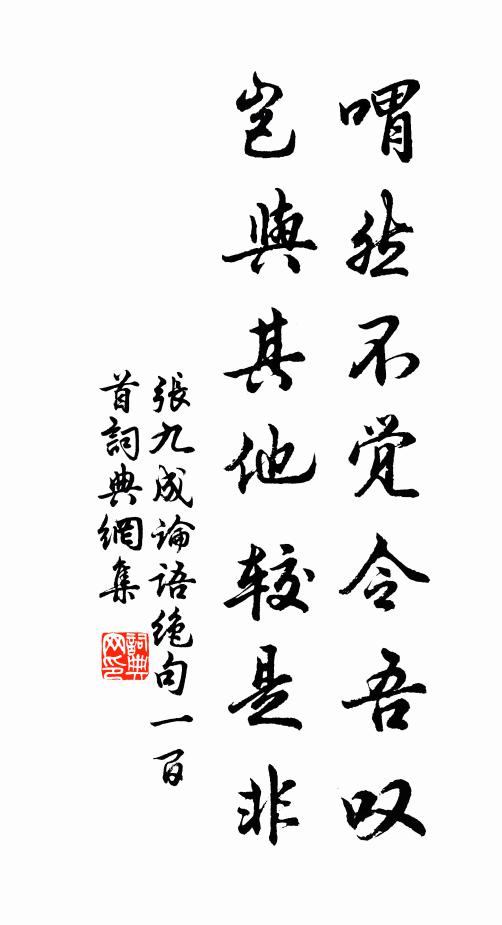 喟然不觉令吾叹
岂與其他较是非
張九成論語绝句一百
首詞典網集
詞典
网印